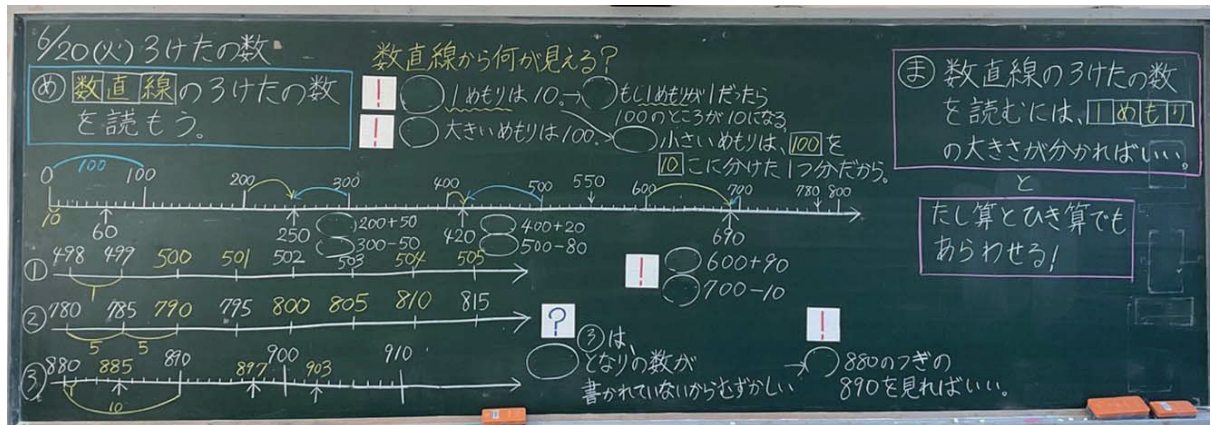 6/20(火) 3けたの数
め 数直線の3けたの数
を読もう。
数直線から何が見える?
! 1めもりは10。→ もし1めもりが1だったら
100のところが10になる。
! 大きいめもりは100。
小さいめもりは、100を
10こに分けた1つ分だから。
100
0 100 200 300 400 500 550 600 700 780 800
10 60 250 420 690
200+50
300-50
400+20
500-80
! 600+90
700-10
① 498 499 500 501 502 503 504 505
1
② 780 785 790 795 800 805 810 815
5 5
③ 880 885 890 897 900 903 910
1
10
? ③は、
となりの数が
書かれていないからむずかしい
→
! 880のつぎの
890を見ればいい。
ま 数直線の3けたの数
を読むには、1めもり
の大きさが分かればいい。
と
たし算とひき算でも
あらわせる!